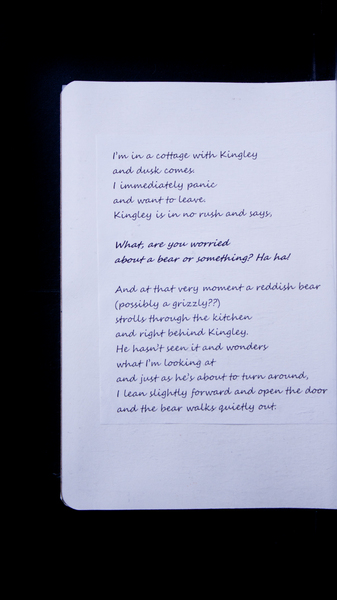 I'm in a cottage with Kingley
and dusk comes.
I immediately panic
and want to leave.
Kingley is in no rush and says,
What, are you worried
about a bear or something? Ha ha!
And at that very moment a reddish bear
(possibly a grizzly??)
strolls through the kitchen
and right behind Kingley.
He hasn't seen it and wonders
what I'm looking at
and just as he's about to turn around,
I lean slightly forward and open the door
and the bear walks quietly out.